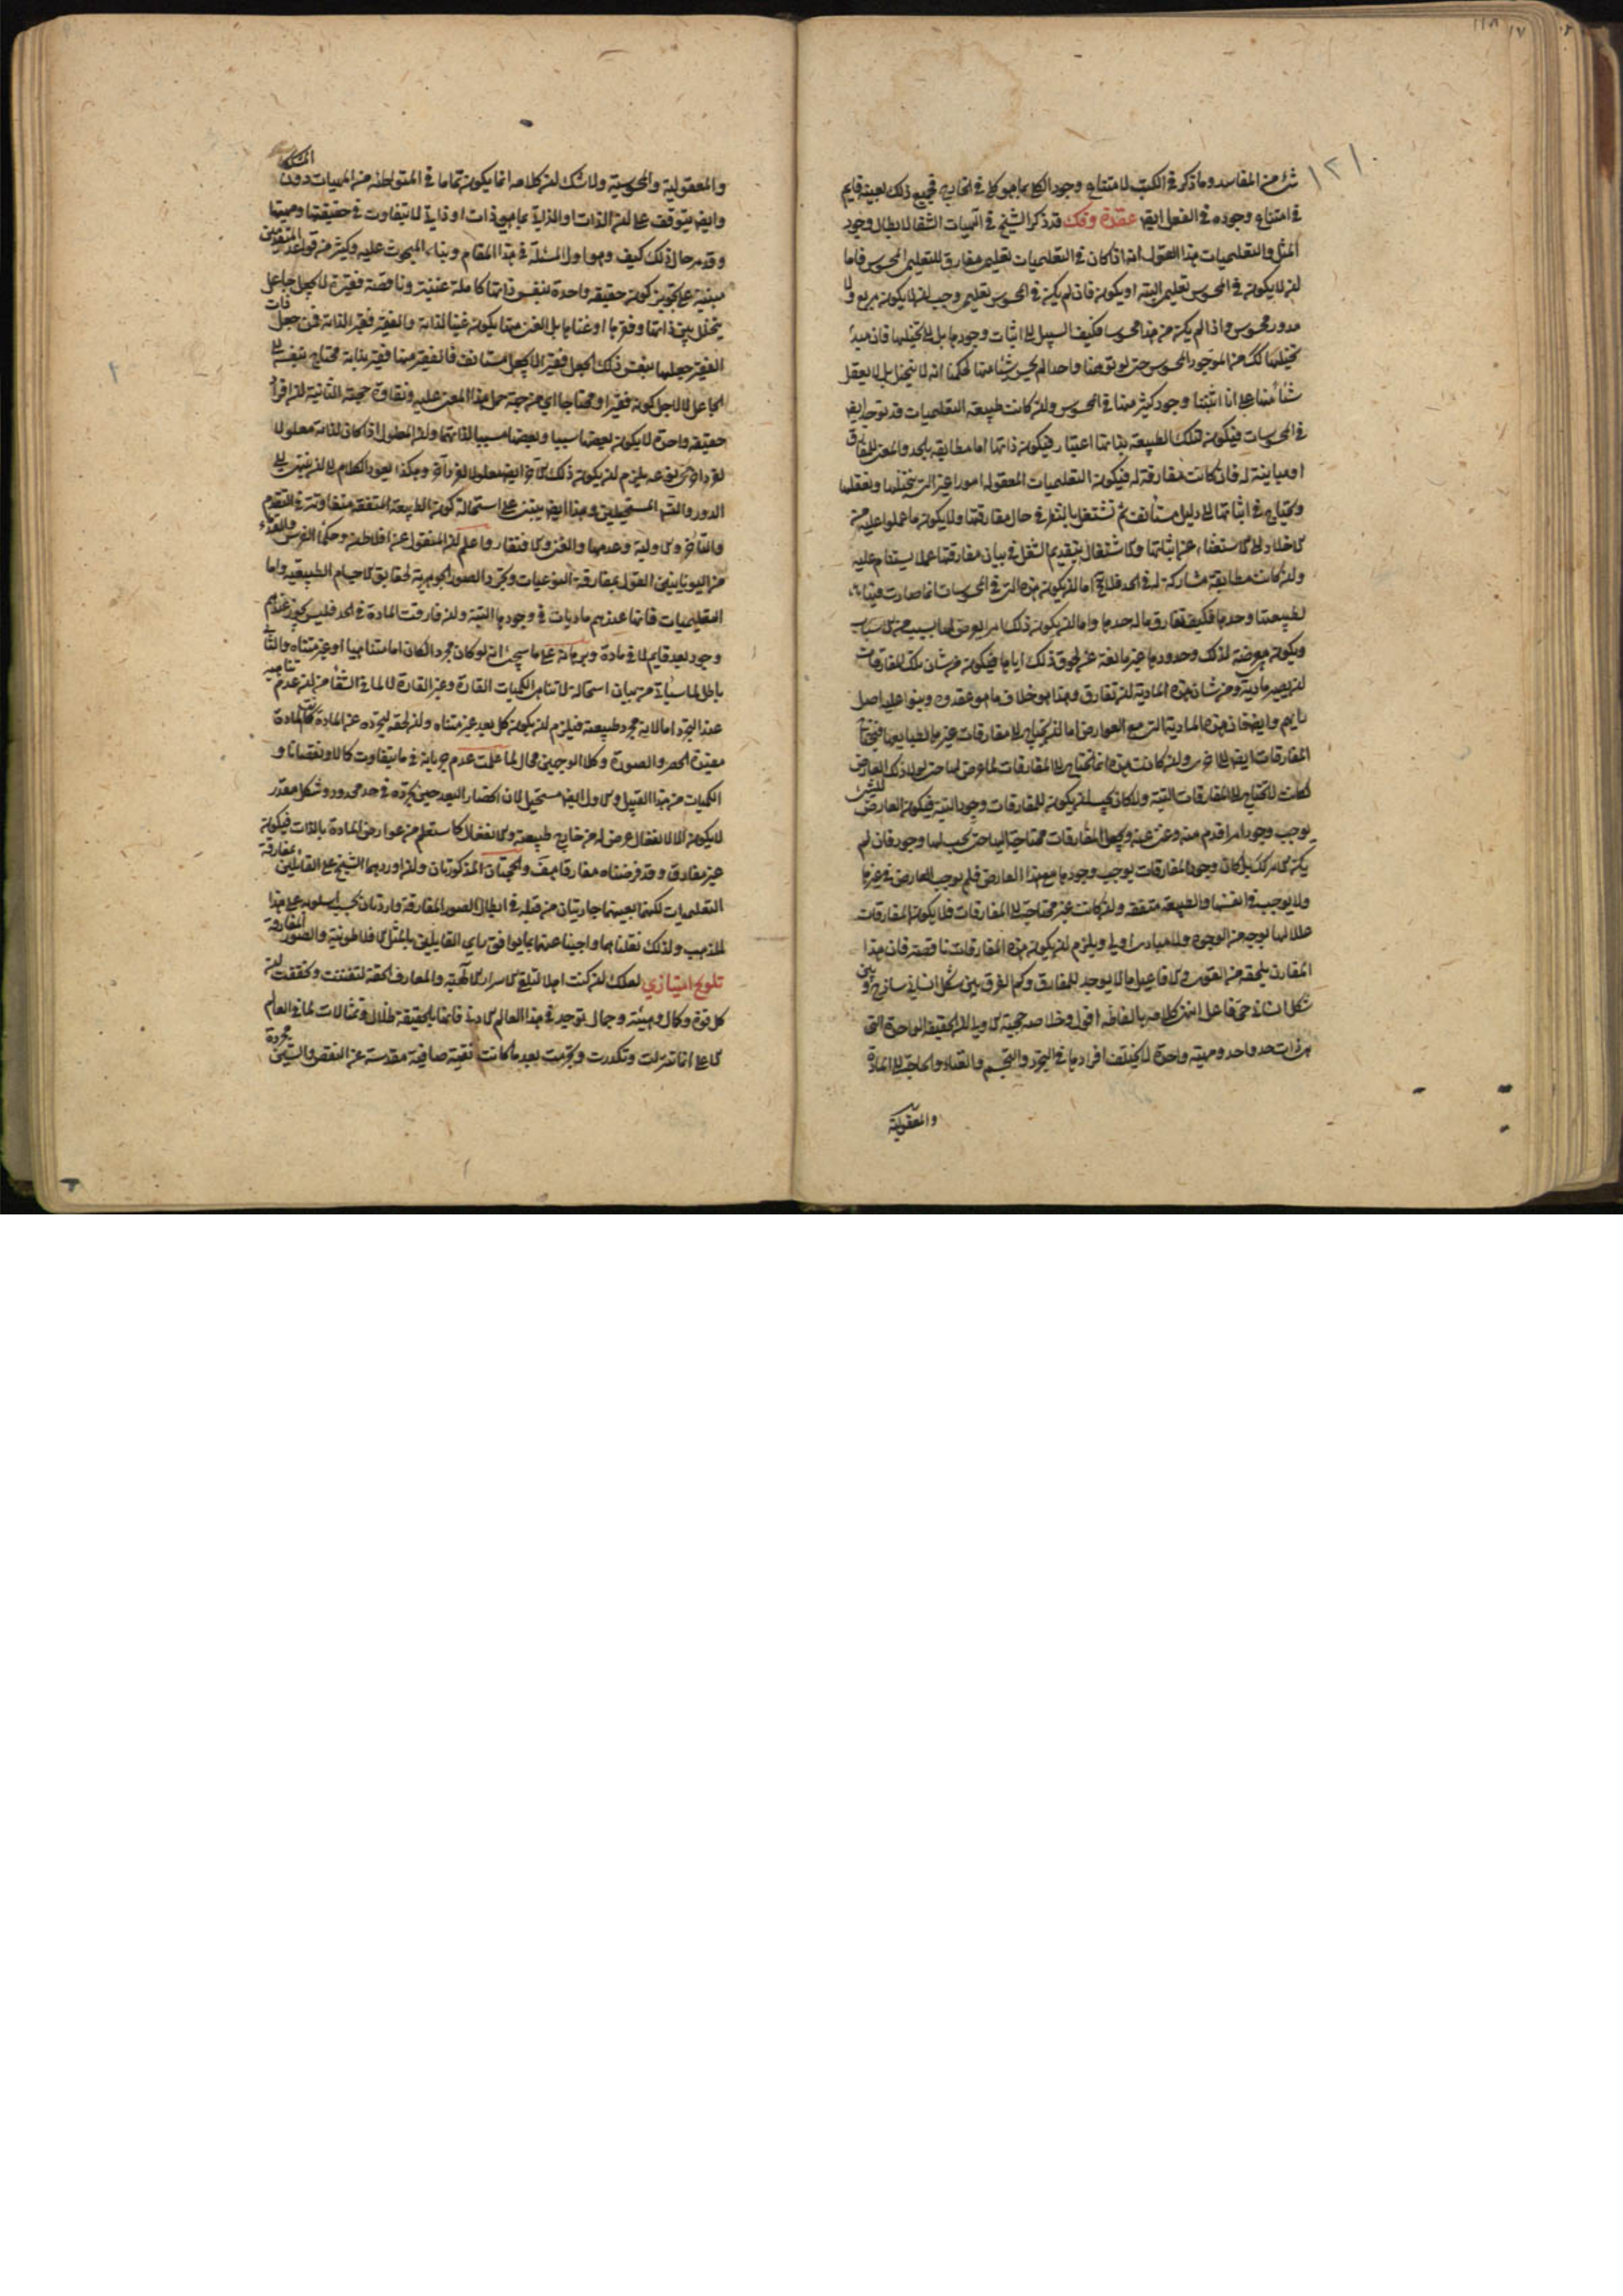 شئ من المفاسد وما ذكر في الكتب لامتناع وجود الكل بما هو كل في الخارج فجميع ذلك بعينه قايم
في امتناع وجوده في العقل ايض عقدة وفك قد ذكر الشيخ في الهيات الشفا لابطال وجود
المثل والتعليميات بهذا القول انه اذا كان في التعليميات تعليمي مفارق للتعليمي المحسوس فاما
ان لا يكون في المحسوس تعليمي البتة او يكون فان لم يكن في المحسوس تعليمي وجب ان لا يكون مربع ولا
مدور محسوس واذا لم يكن من هذا محسوسا فكيف السبيل الى اثبات وجودها بل الى تخيلها فان مبدأ
تخيلها كك من الموجود المحسوس حتى لو توهمنا واحدا لم يحس شيئا منها لحكمنا انه لا يتخيل بل لا يعقل
شيئا منها على انا اثبتنا وجود كثير منها في المحسوس وان كانت طبيعة التعليميات قد توجد ايض
في المحسوسات فيكون لتلك الطبيعة بذاتها اعتبار فيكون ذاتها اما مطابقه بالحد والمعنى للمفارق
او مباينة له فان كانت مفارقة له فيكون التعليميات المعقوله امورا غير التي نتخيلها ونعقلها
ونحتاج في اثباتها الى دليل مستأنف ثم نشتغل بالنظر في حال مفارقتها ولا يكون ما عملوا عليه من
الاخلاد الى الاستغناء عن اثباتها والاشتغال بتقديم الشغل في بيان مفارقتها عملا يستنام عليه
وان كانت مطابقة مشاركة له في الحد فلا يخ اما ان يكون هذه التي في المحسوسات انما صارت فيها
لطبيعتها وحدها فكيف يفارق ما له حدها واما ان يكون ذلك امر ايعرض لها بسبب من الاسباب
ويكون معرضة لذلك وحدودها غير مانعة عن لحوق ذلك اياها فيكون من شان تلك المفارقات
ان يصير مادية ومن شان هذه المادية ان تفارق وهذا هو خلاف ما هو عقدوه وبنوا عليه اصل
رايهم وايضا فان هذه المادية التي مع العوارض اما ان يحتاج الى مفارقات غيرها لطبايعها فيحتاج
المفارقات ايضا الى اخرى وان كانت هذه انما تحتاج الى المفارقات لما عرض لها حتى لولا ذلك العارض
لكانت لا تحتاج الى المفارقات البتة ولا كان يجب ان يكون للمفارقات وجود البتة فيكون العارض للشئ
يوجب وجود امر اقدم منه وغنى عنه ويجعل المفارقات محتاجة اليها حتى يجب لها وجود فان لم
يكن الامر كك بل كان وجود المفارقات يوجب وجودها مع هذا العارض فلم يوجب العارض في غيرها
ولا يوجب في انفسها والطبيعة متفقه وان كانت غير محتاجة الى المفارقات فلا يكون المفارقات
عللا لها بوجه من الوجوه ولا مبادى اولى ويلزم ان يكون هذه المفارقات ناقصة فان هذا
المقارن يلحقه من القوى والافاعيل ما لا يوجد للمفارق وكم الفرق بين شكل انساني ساذج وبين
شكل انساني حي فاعل انتهى كلامه بالفاظه اقول وخلاصة حجيته الاولى ان الحقيقة الواحدة التي
هي ذات حد واحد ومهية واحدة لا يختلف افرادها في التجرد والتجسم والغناء والحاجة الى المادة
والمعقولية
والمعقولية والمحسوسية ولا شك ان كلامه انما يكون تماما في المتواطئة من المهيات دون المشككة
وايض يتوقف على ان الذات او الذاتي بما هو ذات او ذاتي لا يتفاوت في حقيقتها ومهيتها
وقد مر حال ذلك كيف وهو اول المسئلة في هذا المقام وبناء المبحوث عليه وكثير من قواعد المتقدمين
مبنية على تجويز كون حقيقه واحدة بنفس ذاتها كاملة غنية وناقصة فقيرة لا بجعل جاعل
يتخلل بين ذاتها وفقرها او غناها بل الغنى منها يكون غنيا لذاته والفقير فقير الذاته فمن جعل ذات
الفقير جعلها بنفس ذلك الجعل فقير الا بجعل مستانف فالفقير منها فقير بذاته محتاج بنفسه الى
الجاعل لا لاجل كونه فقيرا او محتاجا اي من جهة حمل هذا المعنى عليه ونقاوة حجته الثانية ان افراد
حقيقه واحدة لا يكون بعضها سببا وبعضها مسببا لذاتها وان المعلول اذا كان لذاته معلولا
لفرد اخر من نوعه يلزم ان يكون ذلك الاخر ايض معلولا لفرد آخر وهكذا يعود الكلام الى ان ينتهى الى
الدور او التس المستحيلين وهذا ايض يبتنى على استحالة كون الطبيعة المتفقه متفاوتة في التقدم
والتاخر والاولية وعدمها والغنى والافتقار واعلم ان المنقول عن افلاطن وحكماء الفرس والقدماء
من اليونانيين القول بمفارقة النوعيات وتجرد الصور الجوهرية لحقايق الاجسام الطبيعيه واما
التعليميات فانها عندهم ماديات في وجودها البتة وان فارقت المادة في الحد فليس يجوز عندهم
وجود بعد قايم لا في مادة وبرهانه على ما سيجئ انه لو كان مجردا لكان اما متناهيا او غير متناه والثاني
باطل لما سيأتى من بيان استحالة لا تناهى الكميات القارة وغير القارة لا لما في الشفا من ان عدم تناهيه
عند التجرد اما لانه مجرد طبيعته فيلزم ان يكون كل بعد غير متناه وان لحقه لتجرده عن المادة كانت المادة
مفيدة الحصر والصورة وكلا الوجهين محال لما علمت عدم جريانه في ما يتفاوت كمالا ونقصانا و
الكميات من هذا القبيل والاول ايضا مستحيل لان انحصار البعد حين تجرده في حد محدود وشكل مقدر
لا يكون الا لانفعال عرض له من خارج طبيعته والانفعال كما ستعلم من عوارض المادة بالذات فيكون
غير مفارق وقد فرضناه مفارقا هف والحجتان المذكورتان وان اوردهما الشيخ على القائلين بمفارقة
التعليميات لكنهما بعينهما جاريتان من قبله في ابطال الصور المفارقة واردتان بحسب اسلوبه على هذا
المذهب ولذلك نقلناهما واجبنا عنهما بما يوافق راي القايلين بالمثل الافلاطونية والصور المفارقة
تلويح امتيازي لعلك ان كنت اهلا لتلقى الاسرار الالهية والمعارف الحقة لتفطنت وتحققت ان
كل قوة وكمال وهيئة وجمال توجد في هذا العالم الادنى فانها بالحقيقة ظلال وتمثالات لما في العالم
الاعلى انما تنزلت وتكدرت وتجرمت بعد ما كانت نقية صافية مقدسة عن النقص والشين مجردة